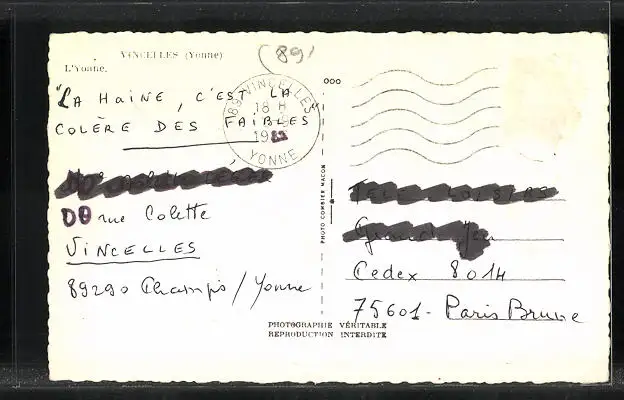 VINCELLES (Yonne)
L'Yonne.
(89)
"LA HAINE, C'EST LA
COLÈRE DES FAIBLES"
89 VINCELLES
18 H
YONNE
rue Colette
VINCELLES
89290 Champs / Yonne
PHOTO COMBIER MACON
Cedex 8014
75601 - Paris Brune
PHOTOGRAPHIE VÉRITABLE
REPRODUCTION INTERDITE